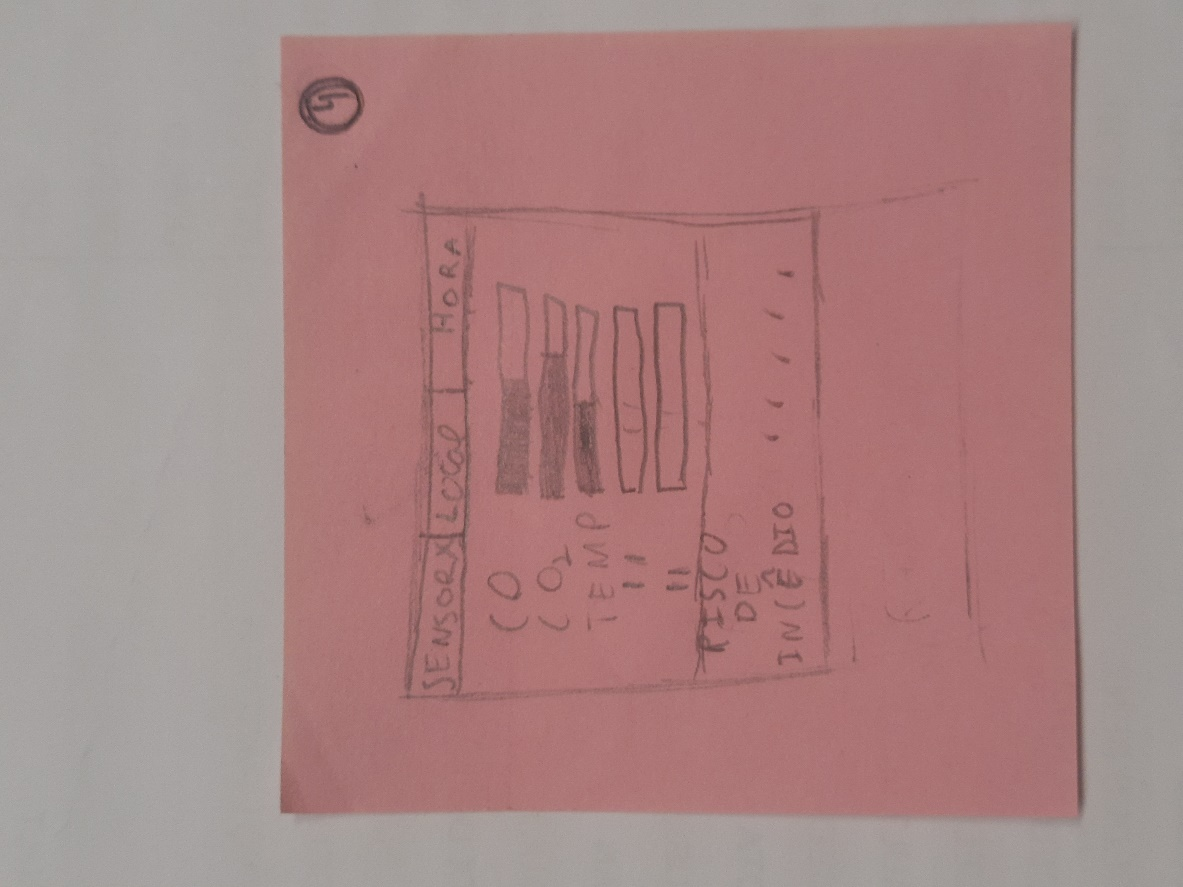 SENSOR X LOCAL HORA
CO
CO2
TEMP
"
"
RISCO
DE
INCÊDIO